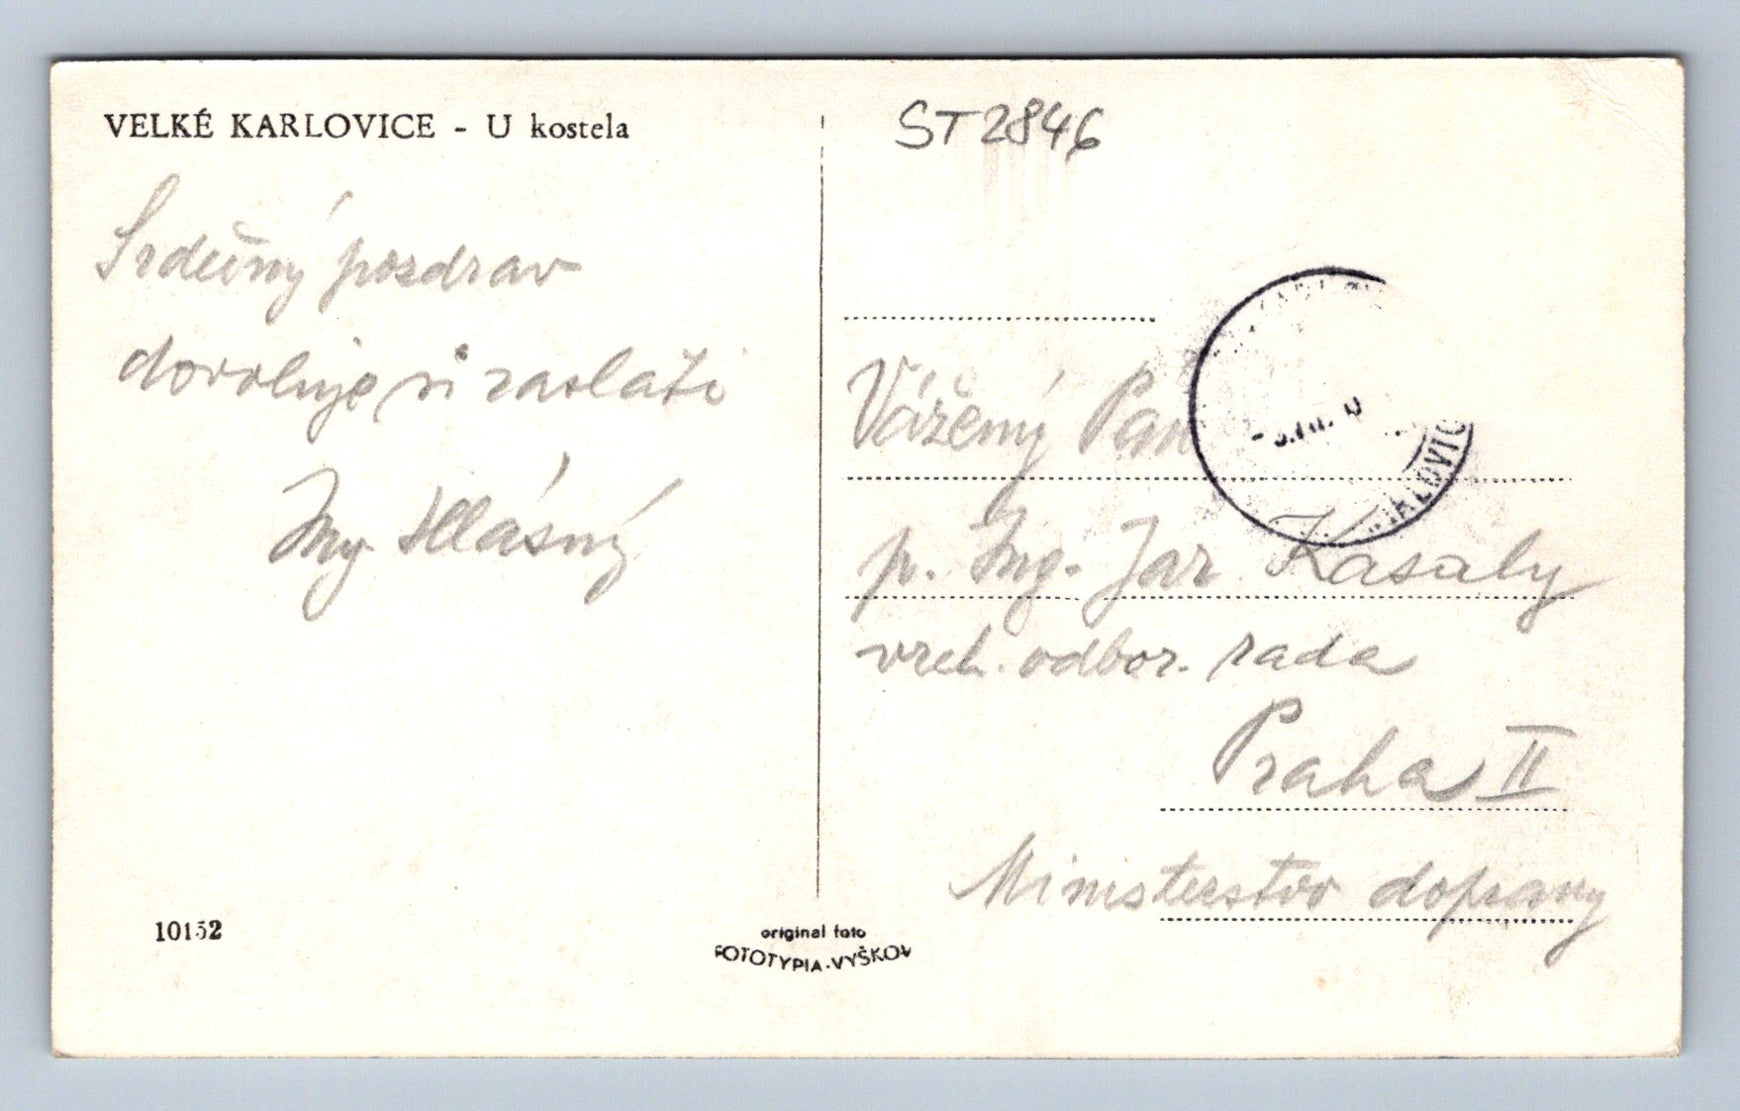 VELKÉ KARLOVICE - U kostela
ST2846
Srdečný pozdrav
dovoluje si zaslati
Ing. Hlásný
Vážený Pan
p. Ing. Jar. Kasaly
vrch. odbor. rada
Praha II
Ministerstvo dopravy
10152
original foto
FOTOTYPIA-VYŠKOV